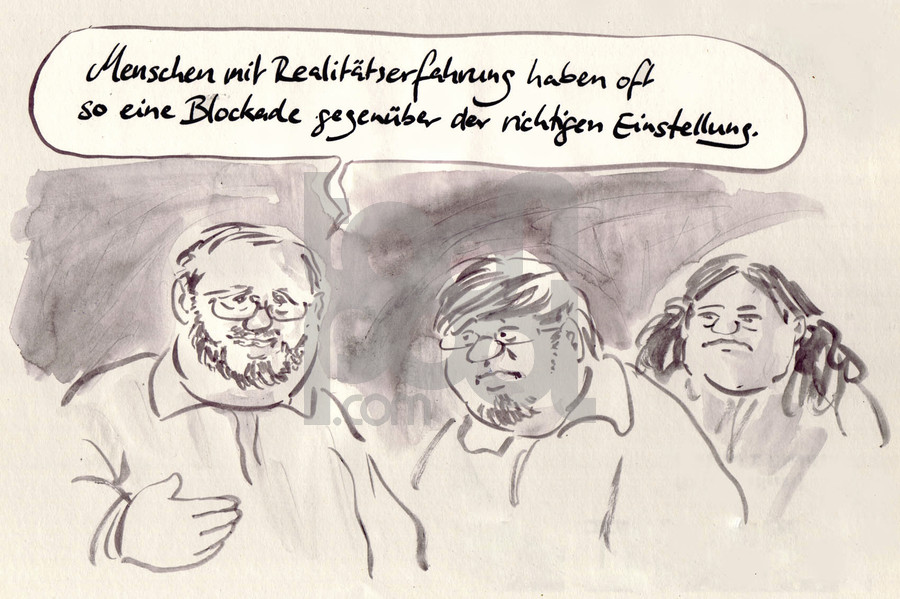 Menschen mit Realitätserfahrung haben oft
so eine Blockade gegenüber der richtigen Einstellung.
toad
.com